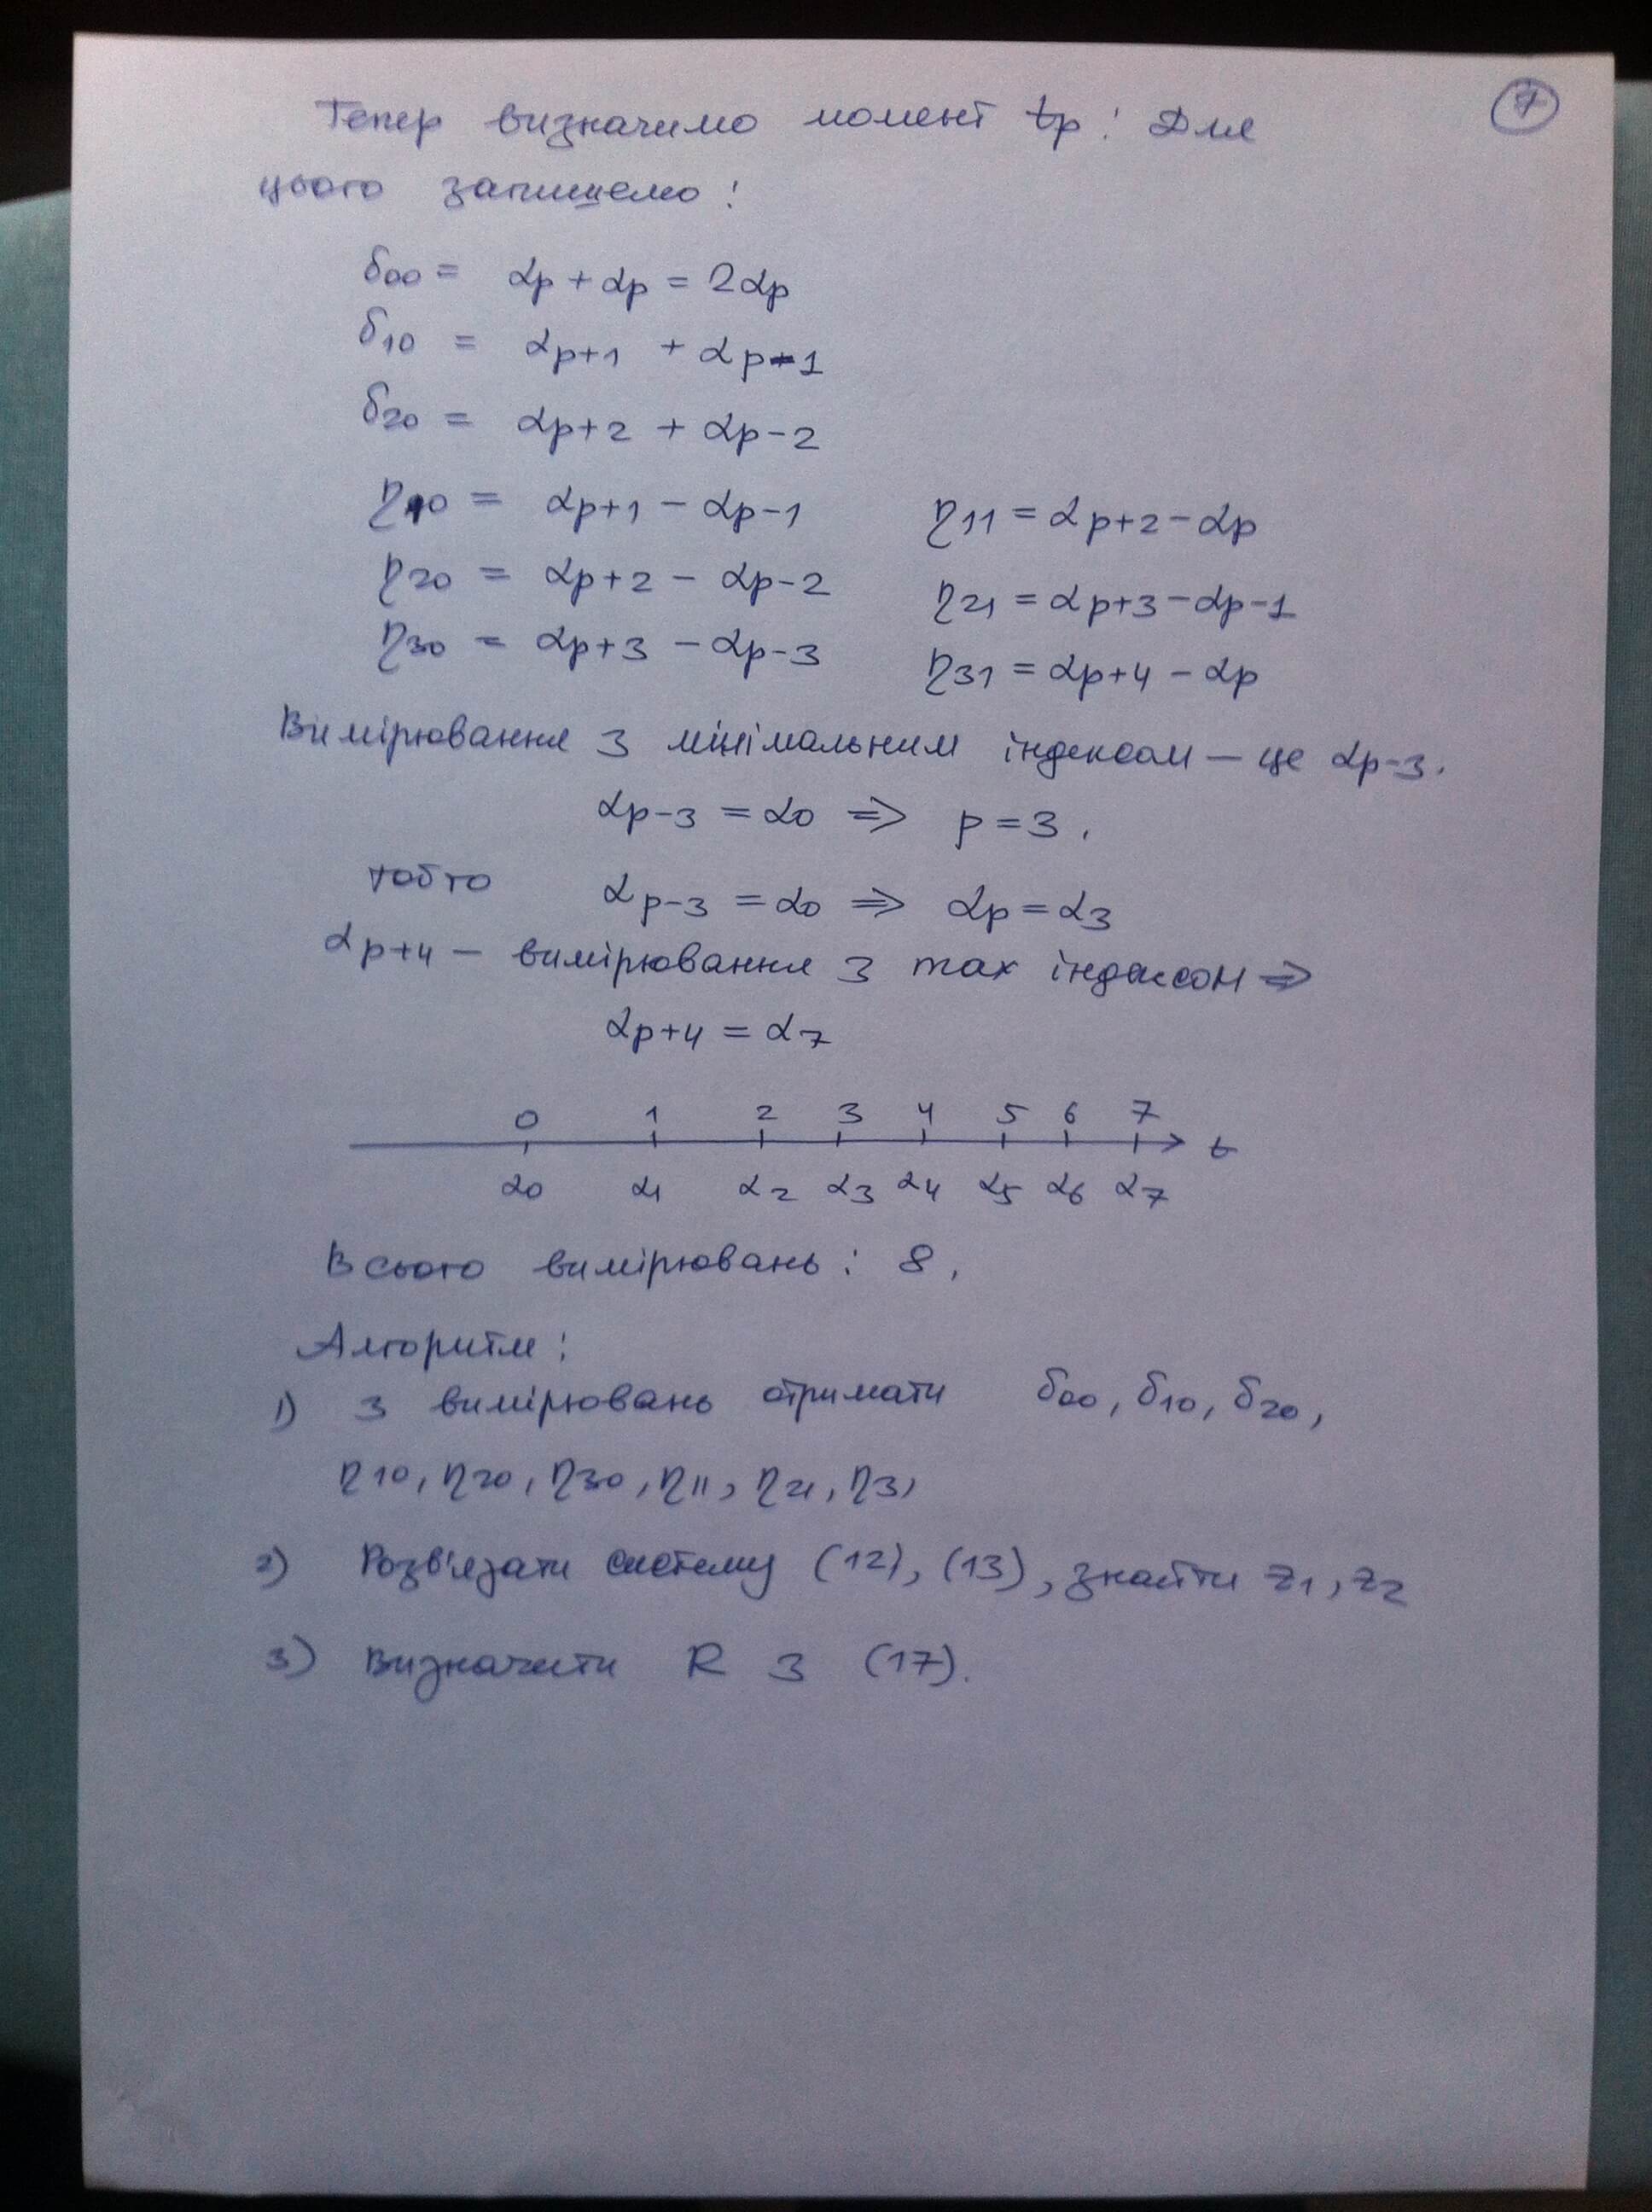 7
Тепер визначимо момент tp: Для
цього запишемо:
δ00 = αp + αp = 2αp
δ10 = αp+1 + αp-1
δ20 = αp+2 + αp-2
η10 = αp+1 - αp-1
η11 = αp+2 - αp
η20 = αp+2 - αp-2
η21 = αp+3 - αp-1
η30 = αp+3 - αp-3
η31 = αp+4 - αp
Вимірювання з мінімальним індексом — це αp-3.
αp-3 = α0 ⇒ p = 3.
тобто αp-3 = α0 ⇒ αp = α3
αp+4 — вимірювання з max індексом ⇒
αp+4 = α7
0 1 2 3 4 5 6 7
t
α0 α1 α2 α3 α4 α5 α6 α7
Всього вимірювань: 8.
Алгоритм:
1) З вимірювань отримати δ00, δ10, δ20,
η10, η20, η30, η11, η21, η31
2) Розв'язати систему (12), (13), знайти z1, z2
3) Визначити R з (17).